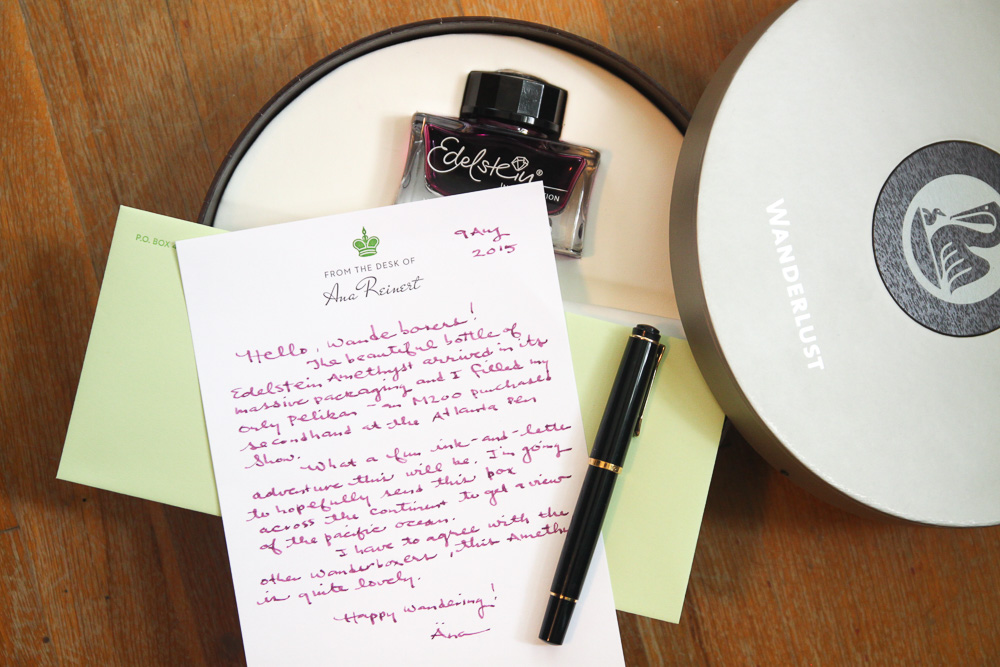 Edelstein®
WANDERLUST
P.O. BOX
FROM THE DESK OF
Ana Reinert
9 Aug
2015
Hello, Wande boxers!
The beautiful bottle of
Edelstein Amethyst arrived in its
massive packaging and I filled my
only Pelikan - an M200 purchased
secondhand at the Atlanta Pen
Show.
What a fun ink-and-letter
adventure this will be. I'm going
to hopefully send this box
across the continent to get a view
of the pacific ocean.
I have to agree with the
other wanderboxers, this Amethy
is quite lovely.
Happy Wandering!
Äna